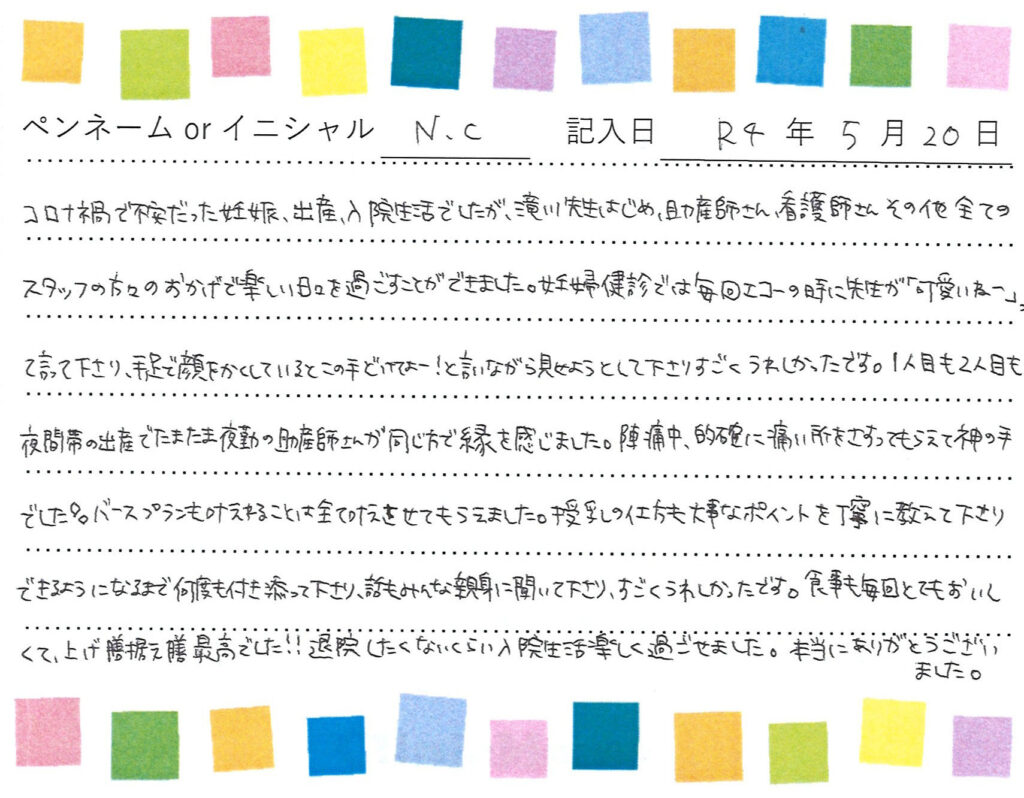 ペンネーム or イニシャル N.C 記入日 R4 年 5 月 20 日
コロナ禍で不安だった妊娠、出産、入院生活でしたが、滝川先生はじめ、助産師さん、看護師さんその他全ての
スタッフの方々のおかげで楽しい日々を過ごすことができました。妊婦健診では毎回エコーの時に先生が「可愛いねー」っ
て言って下さり、手足で顔をかくしているとこの手どけてよー!と言いながら見せようとして下さりすごくうれしかったです。1人目も2人目も
夜間帯の出産でたまたま夜勤の助産師さんが同じ方で縁を感じました。陣痛中、的確に痛い所をさすってもらえて神の手
でした。バースプランも叶えれることは全て叶えさせてもらえました。授乳の仕方も大事なポイントを丁寧に教えて下さり
できるようになるまで何度も付き添って下さり、話もみんな親身に聞いて下さり、すごくうれしかったです。食事も毎回とてもおいし
くて、上げ膳据え膳最高でした!!退院したくないくらい入院生活楽しく過ごせました。本当にありがとうござい
ました。